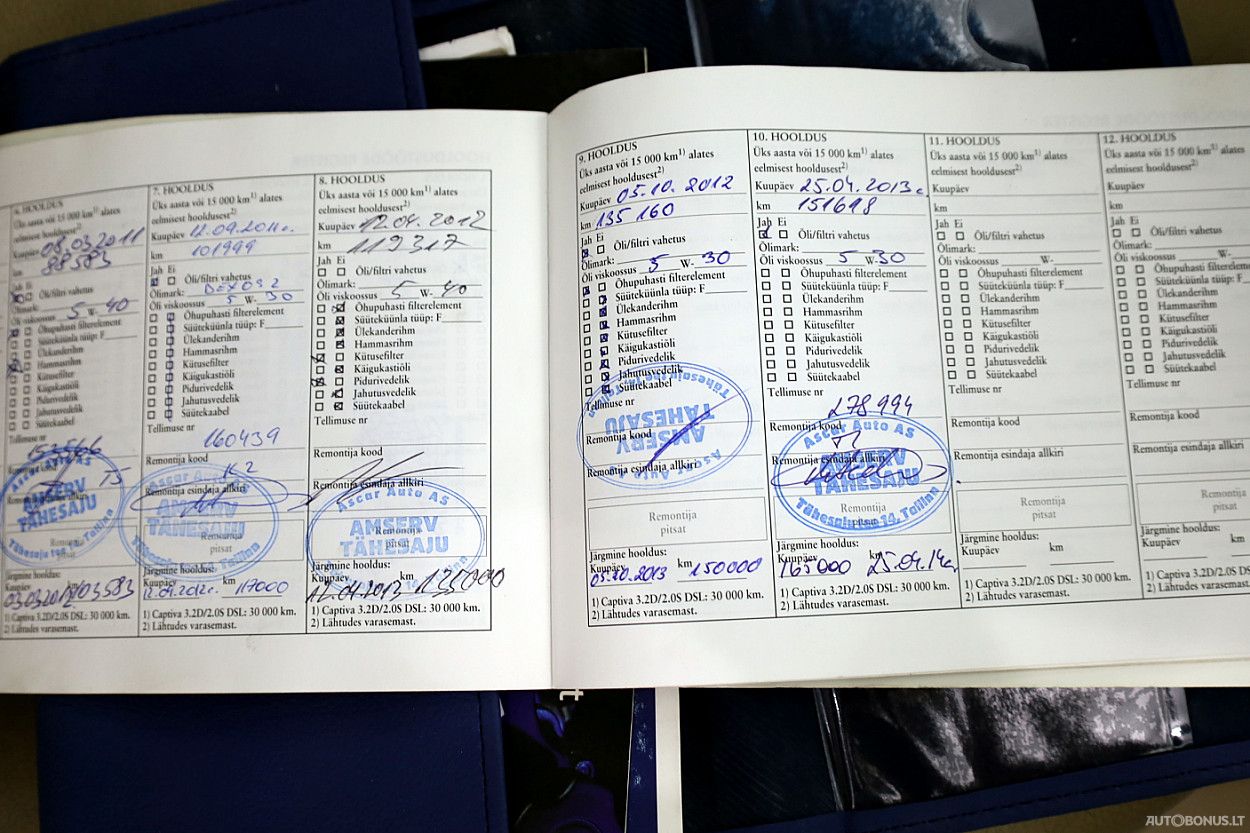 6. HOOLDUS
Üks aasta või 15 000 km¹⁾ alates
eelmisest hooldusest²⁾
Kuupäev 08.03.2011
km 88583
Jah Ei
Õli/filtri vahetus
Õlimark:
Õli viskoossus 5 W- 40
Õhupuhasti filterelement
Süüteküünla tüüp: F
Ülekanderihm
Hammasrihm
Kütusefilter
Käigukastiõli
Pidurivedelik
Jahutusvedelik
Süütekaabel
Tellimuse nr
Remontija kood
AMSERV
TÄHESAJU
Remontija
pitsat
Järgmine hooldus:
Kuupäev
1) Captiva 3.2D/2.0S DSL: 30 000 km.
2) Lähtudes varasemast.
7. HOOLDUS
Üks aasta või 15 000 km¹⁾ alates
eelmisest hooldusest²⁾
Kuupäev 12.09.2011.
km 101999
Jah Ei
Õli/filtri vahetus
Õlimark: DEXOS 2
Õli viskoossus 5 W- 30
Õhupuhasti filterelement
Süüteküünla tüüp: F
Ülekanderihm
Hammasrihm
Kütusefilter
Käigukastiõli
Pidurivedelik
Jahutusvedelik
Süütekaabel
Tellimuse nr
160439
Remontija kood
K2
Remontija esindaja allkiri
Ascar Auto AS
AMSERV
TÄHESAJU
Remontija
pitsat
Järgmine hooldus:
Kuupäev km
12.09.2012. 117000
1) Captiva 3.2D/2.0S DSL: 30 000 km.
2) Lähtudes varasemast.
8. HOOLDUS
Üks aasta või 15 000 km¹⁾ alates
eelmisest hooldusest²⁾
Kuupäev 12.04.2012
km 119317
Jah Ei
Õli/filtri vahetus
Õlimark:
Õli viskoossus 5 W- 40
Õhupuhasti filterelement
Süüteküünla tüüp: F
Ülekanderihm
Hammasrihm
Kütusefilter
Käigukastiõli
Pidurivedelik
Jahutusvedelik
Süütekaabel
Tellimuse nr
Remontija kood
Remontija esindaja allkiri
Ascar Auto AS
AMSERV
TÄHESAJU
Remontija
pitsat
Järgmine hooldus:
Kuupäev km
12.04.2013 135000
1) Captiva 3.2D/2.0S DSL: 30 000 km.
2) Lähtudes varasemast.
9. HOOLDUS
Üks aasta või 15 000 km¹⁾ alates
eelmisest hooldusest²⁾
Kuupäev 05.10.2012
km 135 160
Jah Ei
Õli/filtri vahetus
Õlimark:
Õli viskoossus 5 W- 30
Õhupuhasti filterelement
Süüteküünla tüüp: F
Ülekanderihm
Hammasrihm
Kütusefilter
Käigukastiõli
Pidurivedelik
Jahutusvedelik
Süütekaabel
Tellimuse nr
AMSERV
TÄHESAJU
Ascar Auto AS
Remontija kood
Remontija esindaja allkiri
Remontija
pitsat
Järgmine hooldus:
Kuupäev km
05.10.2013 150000
1) Captiva 3.2D/2.0S DSL: 30 000 km.
2) Lähtudes varasemast.
10. HOOLDUS
Üks aasta või 15 000 km¹⁾ alates
eelmisest hooldusest²⁾
Kuupäev 25.04.2013
km 151698
Jah Ei
Õli/filtri vahetus
Õlimark:
Õli viskoossus 5 W- 30
Õhupuhasti filterelement
Süüteküünla tüüp: F
Ülekanderihm
Hammasrihm
Kütusefilter
Käigukastiõli
Pidurivedelik
Jahutusvedelik
Süütekaabel
Tellimuse nr
278994
Remontija kood
Ascar Auto AS
Remontija esindaja allkiri
AMSERV
TÄHESAJU
pitsat
Tähesaju tee 14, Tallinn
Järgmine hooldus:
Kuupäev km
165000 25.04.14
1) Captiva 3.2D/2.0S DSL: 30 000 km.
2) Lähtudes varasemast.
11. HOOLDUS
Üks aasta või 15 000 km¹⁾ alates
eelmisest hooldusest²⁾
Kuupäev
km
Jah Ei
Õli/filtri vahetus
Õlimark:
Õli viskoossus W-
Õhupuhasti filterelement
Süüteküünla tüüp: F
Ülekanderihm
Hammasrihm
Kütusefilter
Käigukastiõli
Pidurivedelik
Jahutusvedelik
Süütekaabel
Tellimuse nr
Remontija kood
Remontija esindaja allkiri
Remontija
pitsat
Järgmine hooldus:
Kuupäev km
1) Captiva 3.2D/2.0S DSL: 30 000 km.
2) Lähtudes varasemast.
12. HOOLDUS
Üks aasta või 15 000 km¹⁾
eelmisest hooldusest²⁾
Kuupäev
km
Jah Ei
Õli/filtri vahetus
Õlimark:
Õli viskoossus W-
Õhupuhasti filterelement
Süüteküünla tüüp: F
Ülekanderihm
Hammasrihm
Kütusefilter
Käigukastiõli
Pidurivedelik
Jahutusvedelik
Süütekaabel
Tellimuse nr
Remontija kood
Remontija esindaja allkiri
Remontija
pitsat
Järgmine hooldus:
Kuupäev
1) Captiva 3.2D/2.0S DSL: 30
2) Lähtudes varasemast.
AUTOBONUS.LT